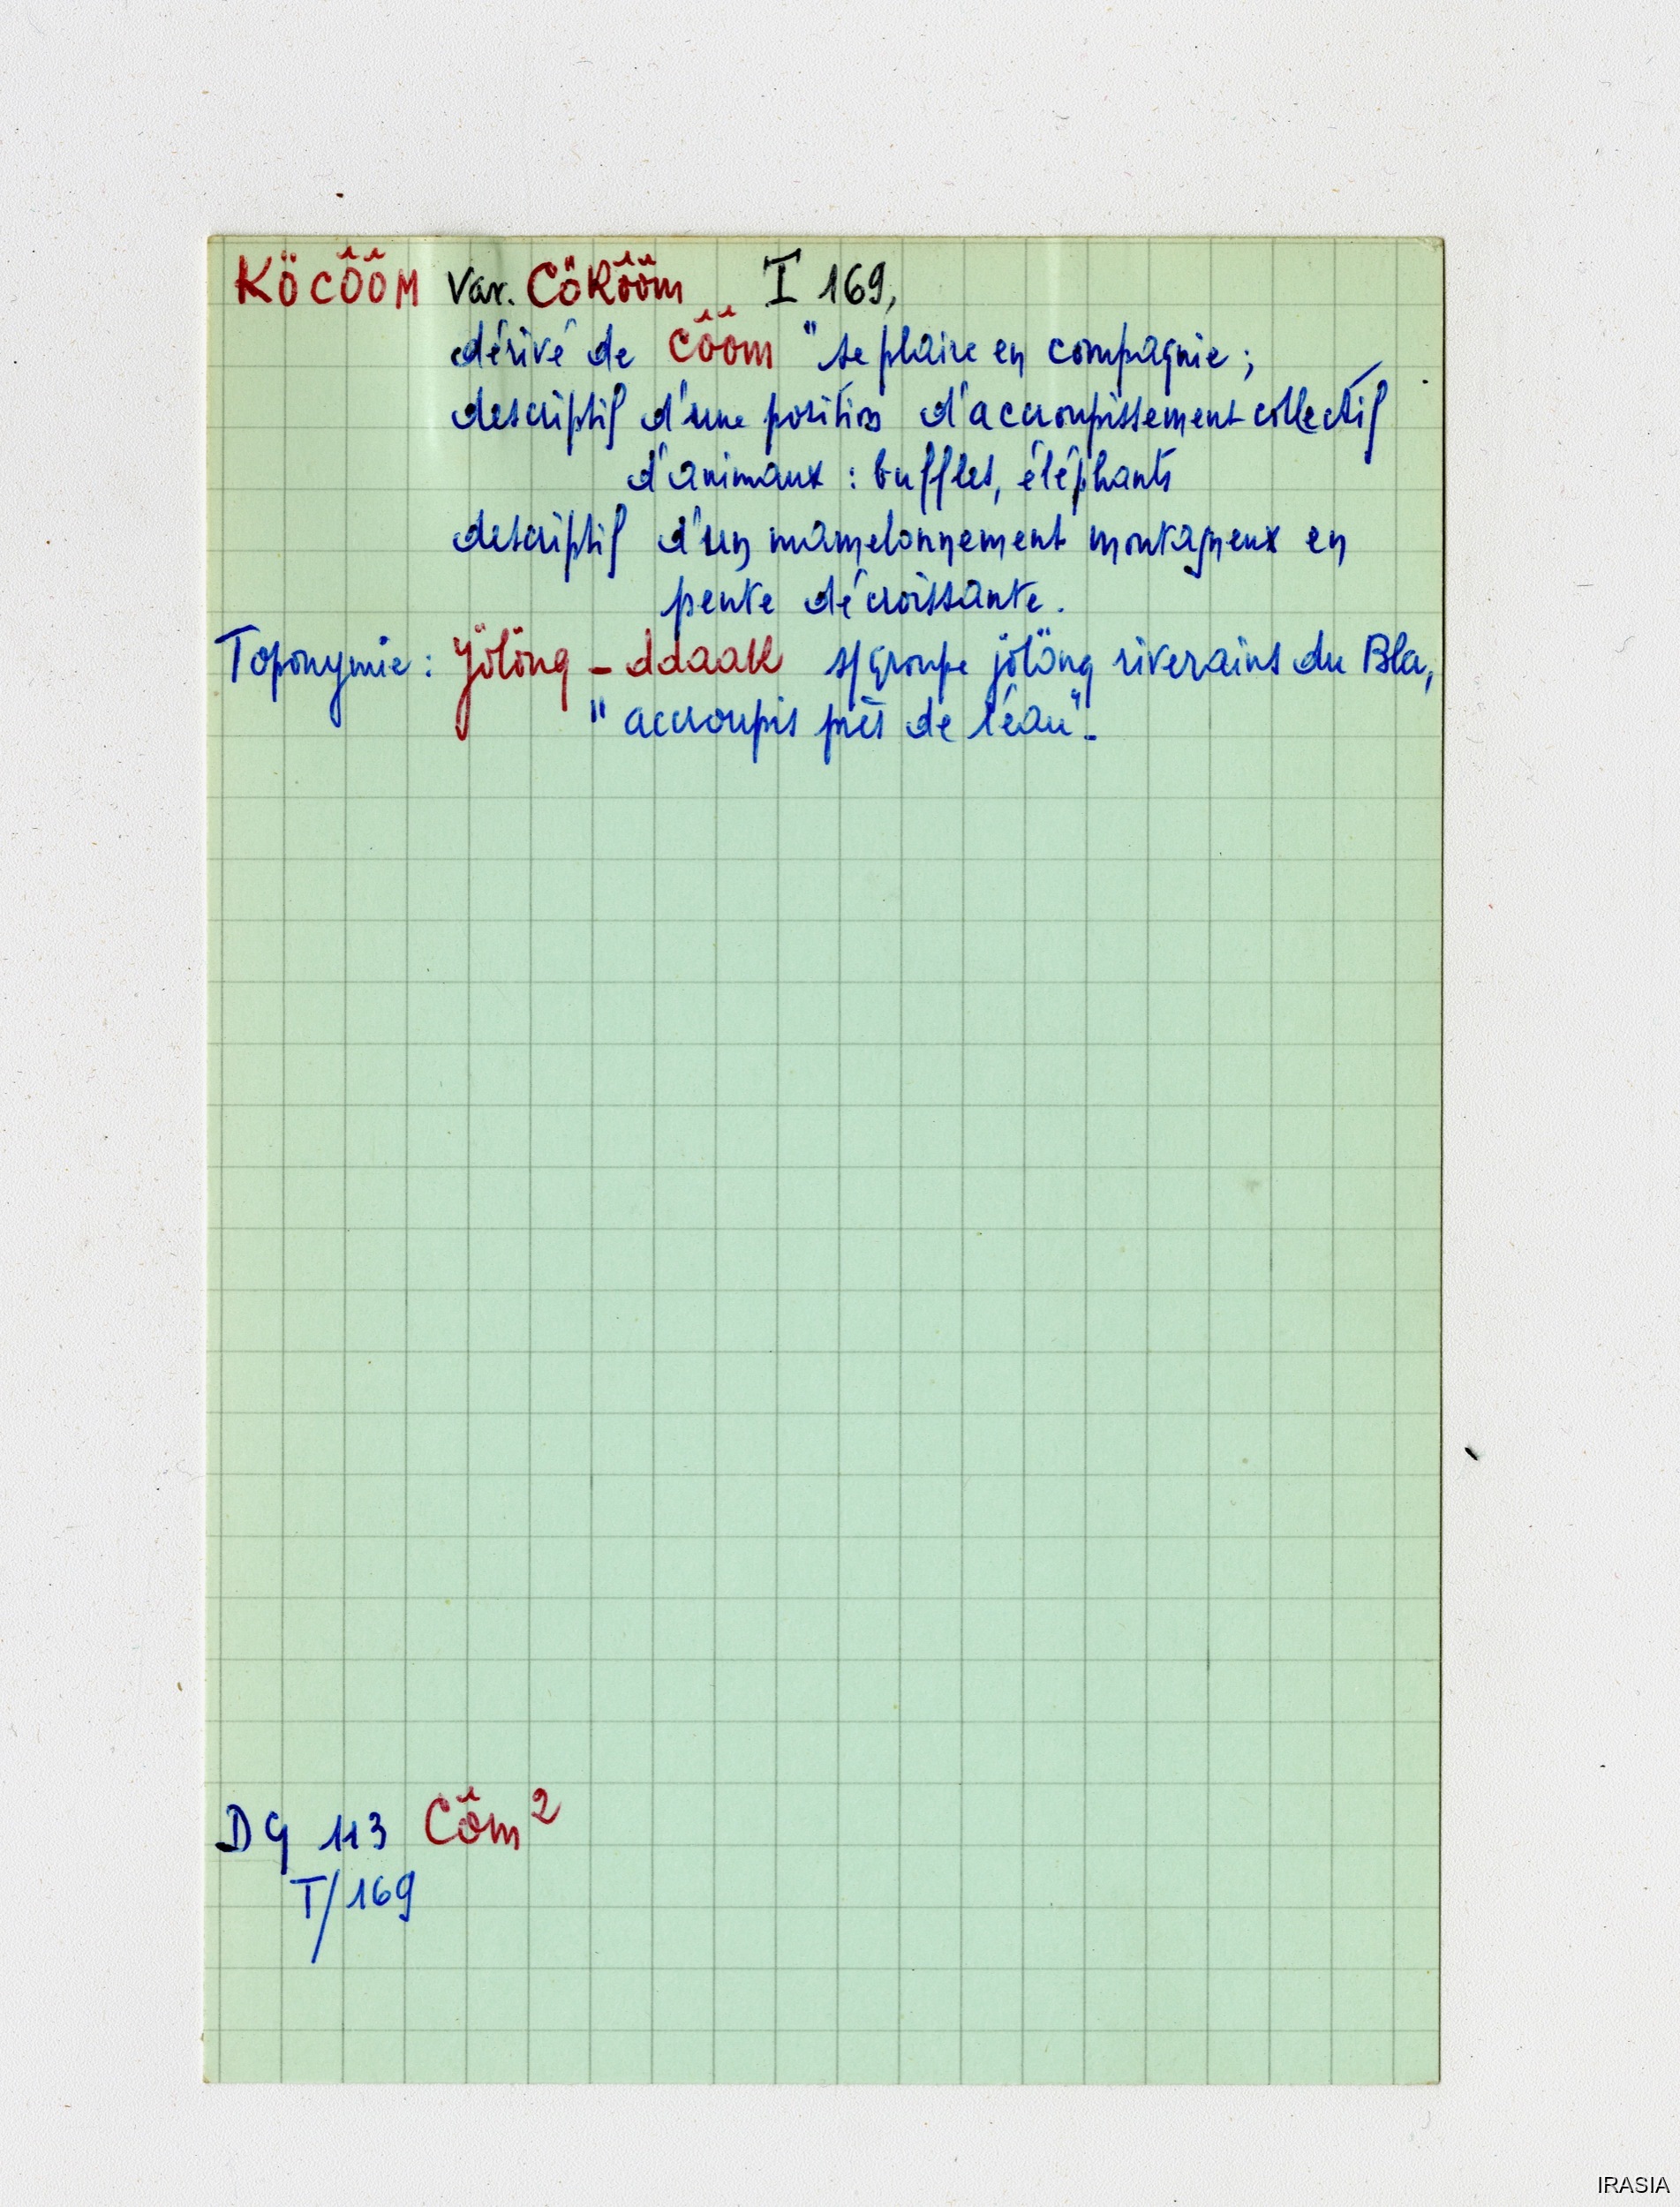 KÖCÔ̈Ô̈M Var. CÖKÔ̈Ô̈m I 169,
dérivé de CÔ̈Ô̈m "se plaire en compagnie ;
descriptif d'une position d'accroupissement collectif
d'animaux : buffles, éléphants
descriptif d'un mamelonnement montagneux en
pente décroissante.
Toponymie : Jölöng - ddaak s/groupe jölöng riverains du Bla,
"accroupis près de l'eau".
DG 113 CÔ̈m²
T/169
IRASIA